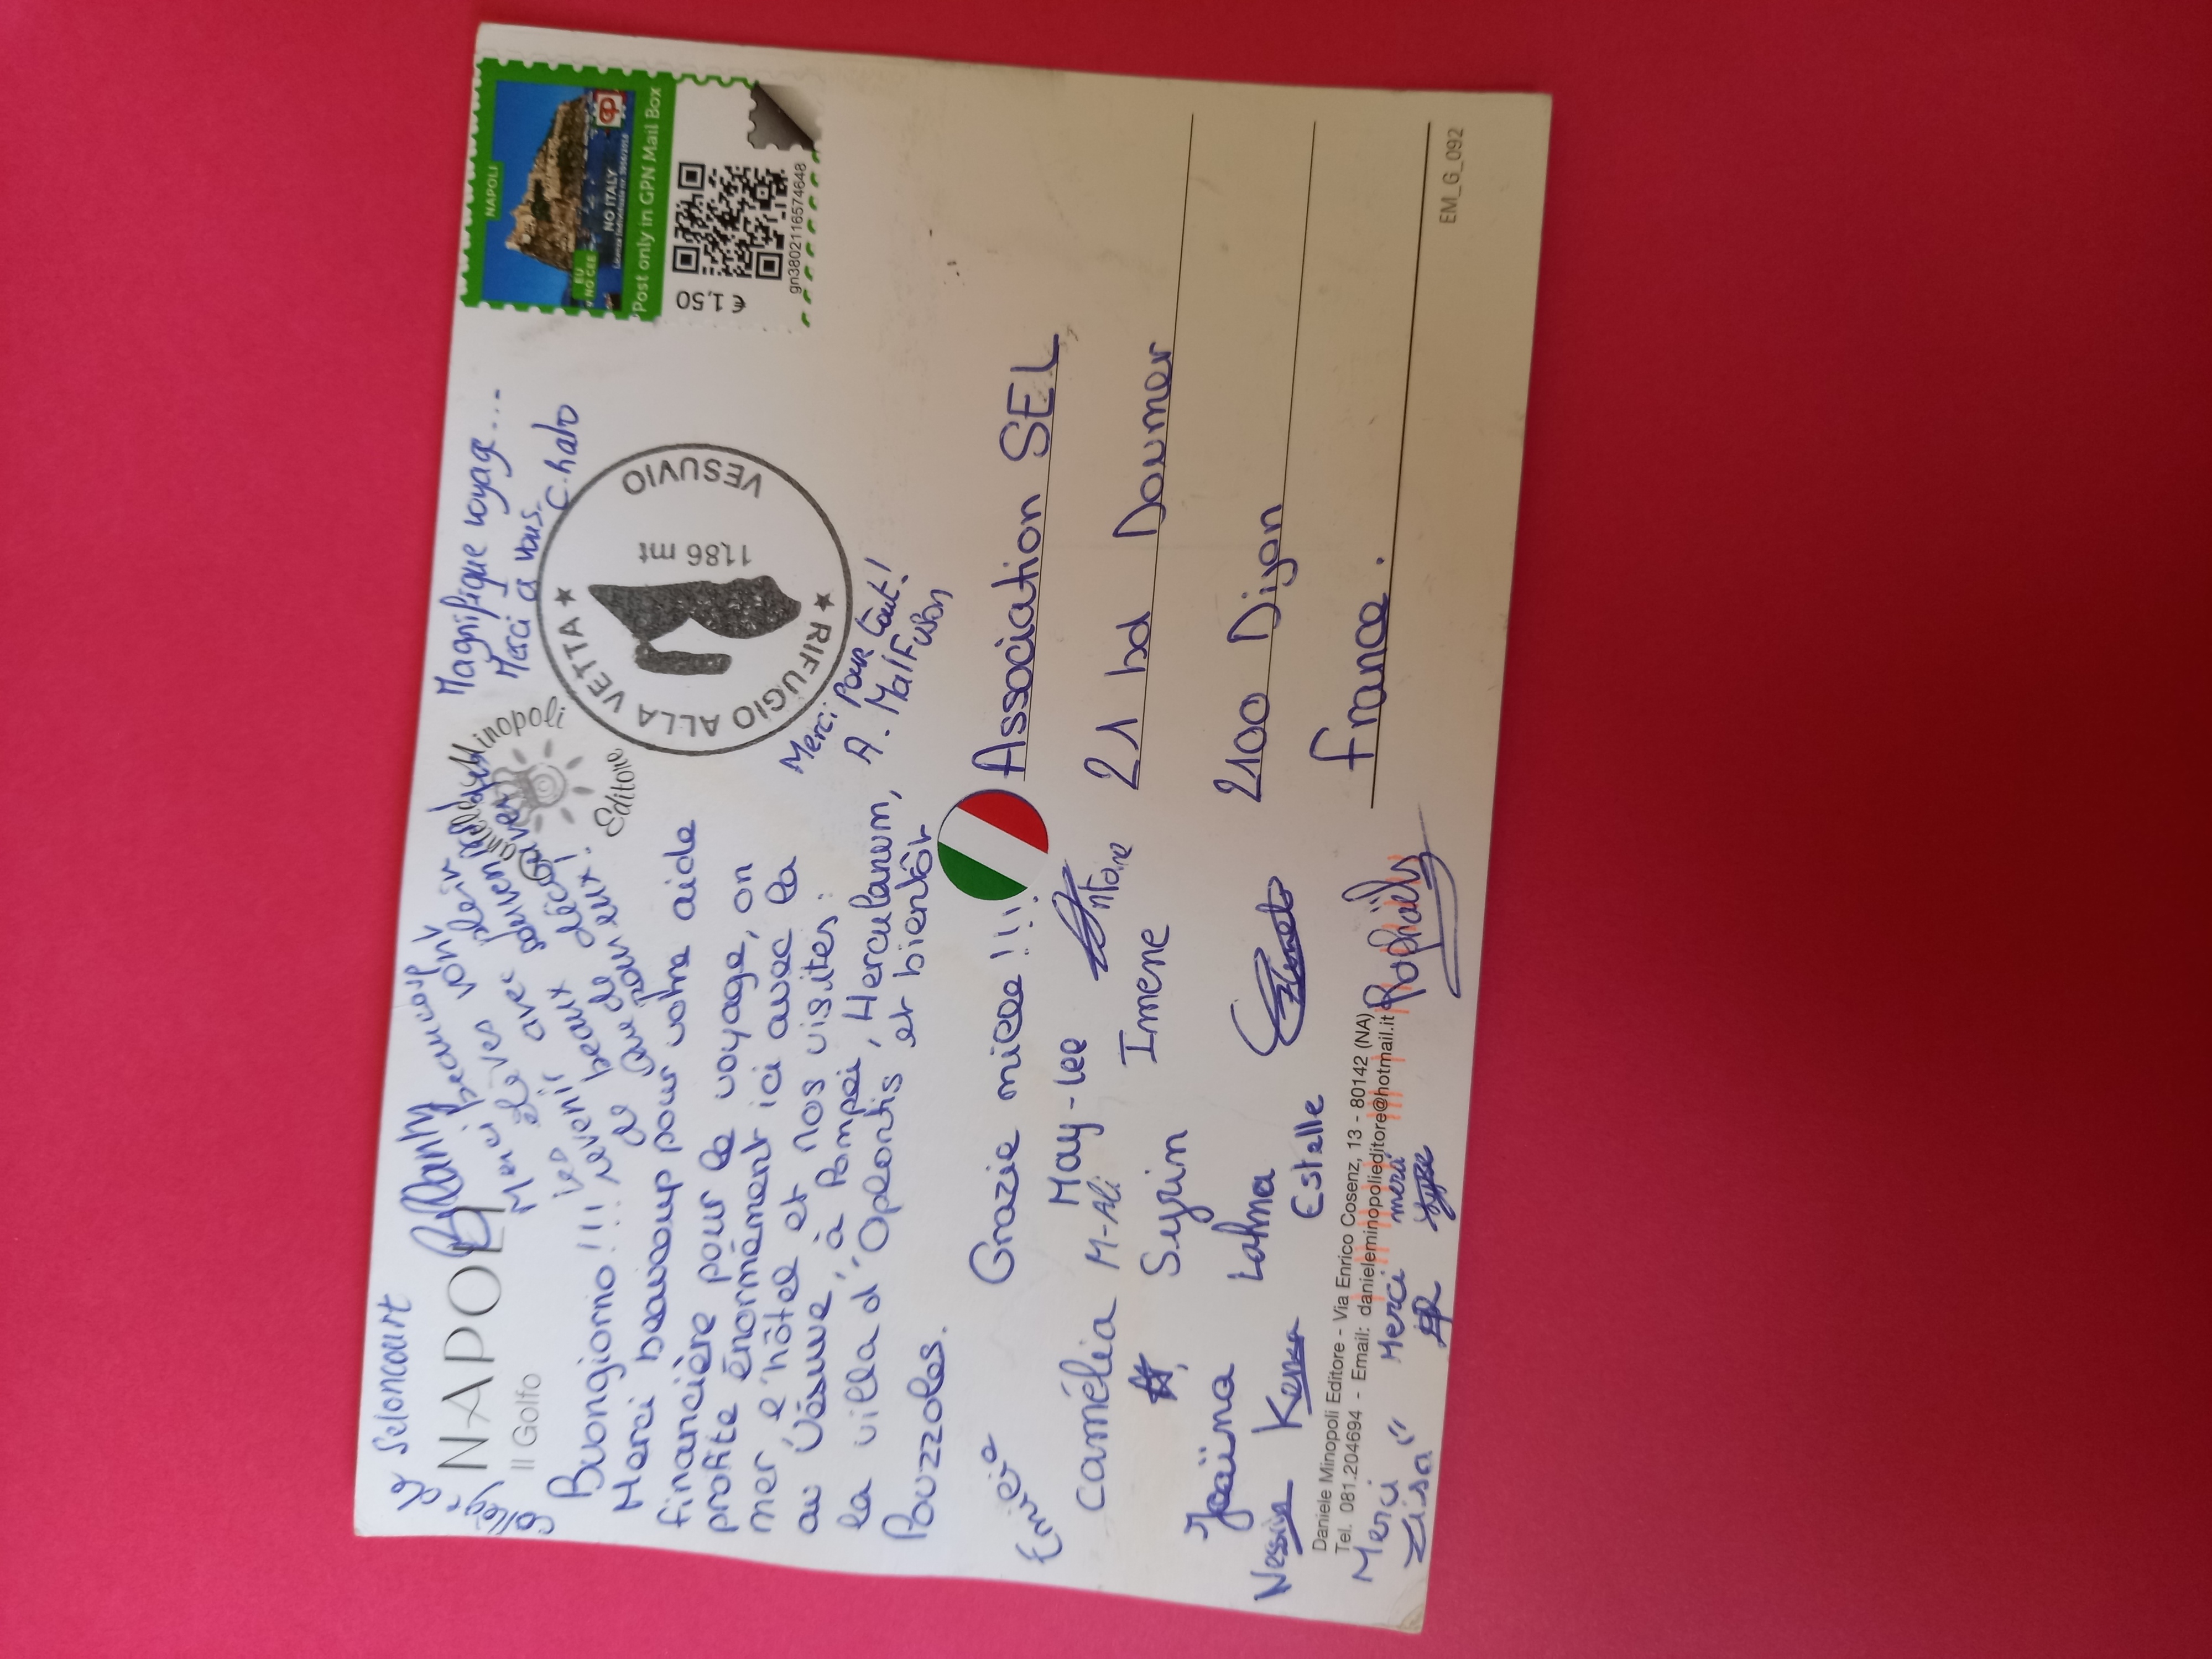 Collège
Seloncourt
NAPOLI
Il Golfo
Merci beaucoup!
les élèves vont
revenir avec plein
de beaux souvenirs
Magnifique voyage...
Merci à vous. C.halo
Daniele Minopoli
Editore
NAPOLI
EU
NO CEE
NO ITALY
Post only in GPN Mail Box
€ 1,50
gn3802116574648
★ RIFUGIO ALLA VETTA ★ VESUVIO
1186 mt
Buongiorno !!!
Merci beaucoup pour votre aide
financière pour le voyage, on
profite énormément ici avec la
mer l'hôtel et nos visites :
au Vésuve, à Pompei, Herculanum,
la villa d'Oplontis et bientôt
Pouzzoles.
Merci Pour tout!
A. Malfuson
Grazie mille !!!
Association SEL
21 bd Doumer
2100 Dijon
France.
Camélia
May-lee
M-Ali
Antoine
Syrin
Imene
Lahna
Nessim
Kenza
Estelle
Raphaël
Daniele Minopoli Editore - Via Enrico Cosenz, 13 - 80142 (NA)
Tel. 081.204694 - Email: danieleminopolieditore@hotmail.it
Merci
Merci
merci
EM_G_092